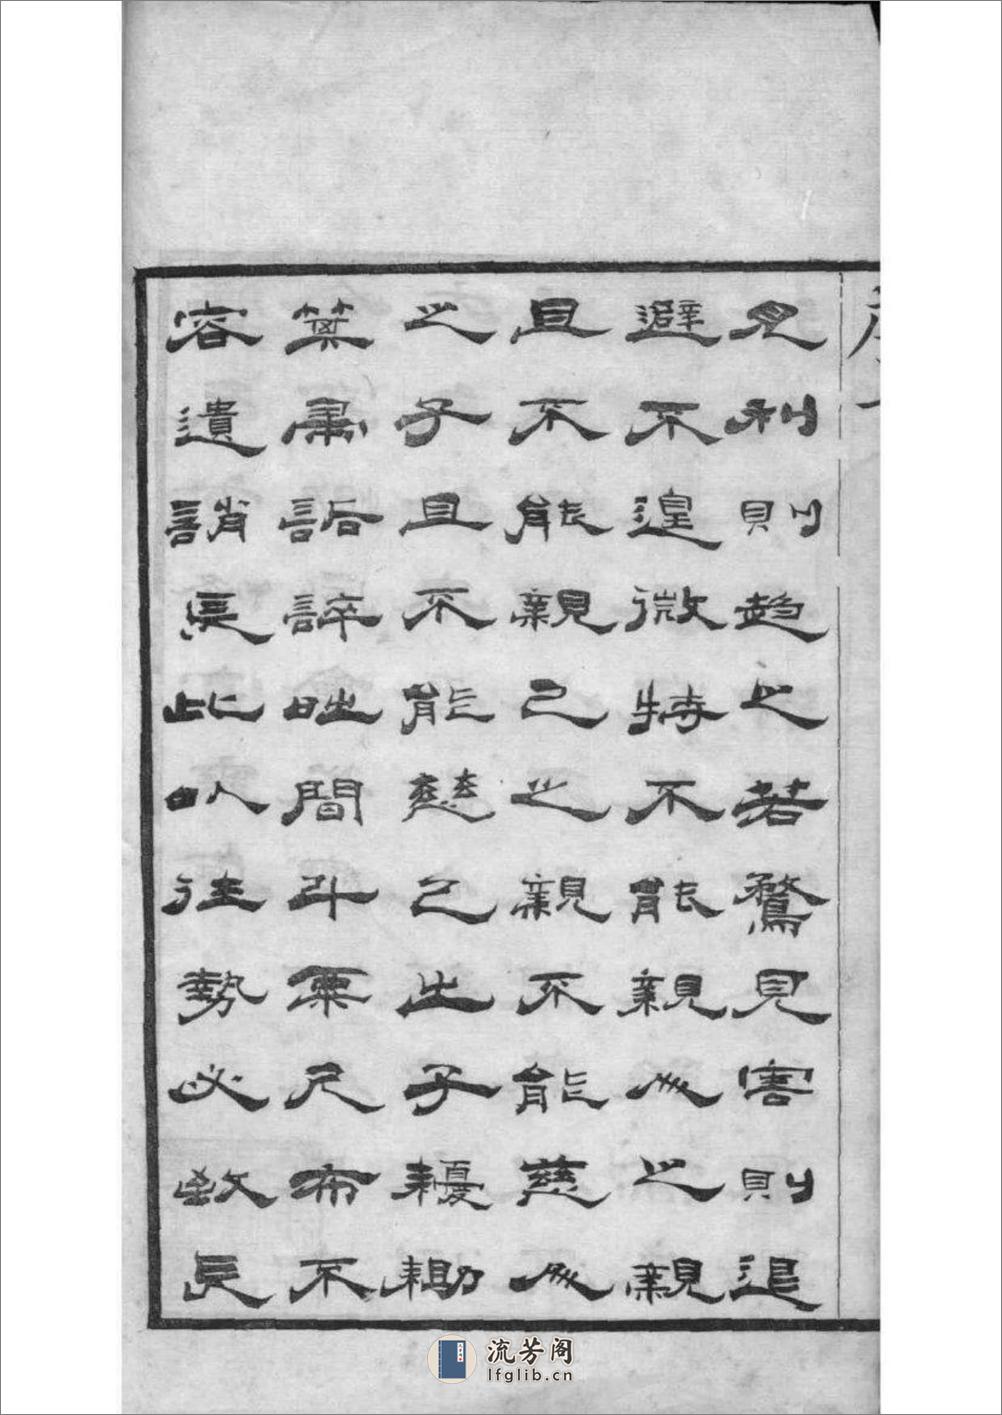 見利則趋之若鶩見害則退
避不遑微特不能親人之親
且不能親己之親不能慈人
之子且不能慈己之子耰耡
箕帚詬誶時間斗粟尺布不
容遺誚長此以往勢必致民
流芳阁
lfglib.cn